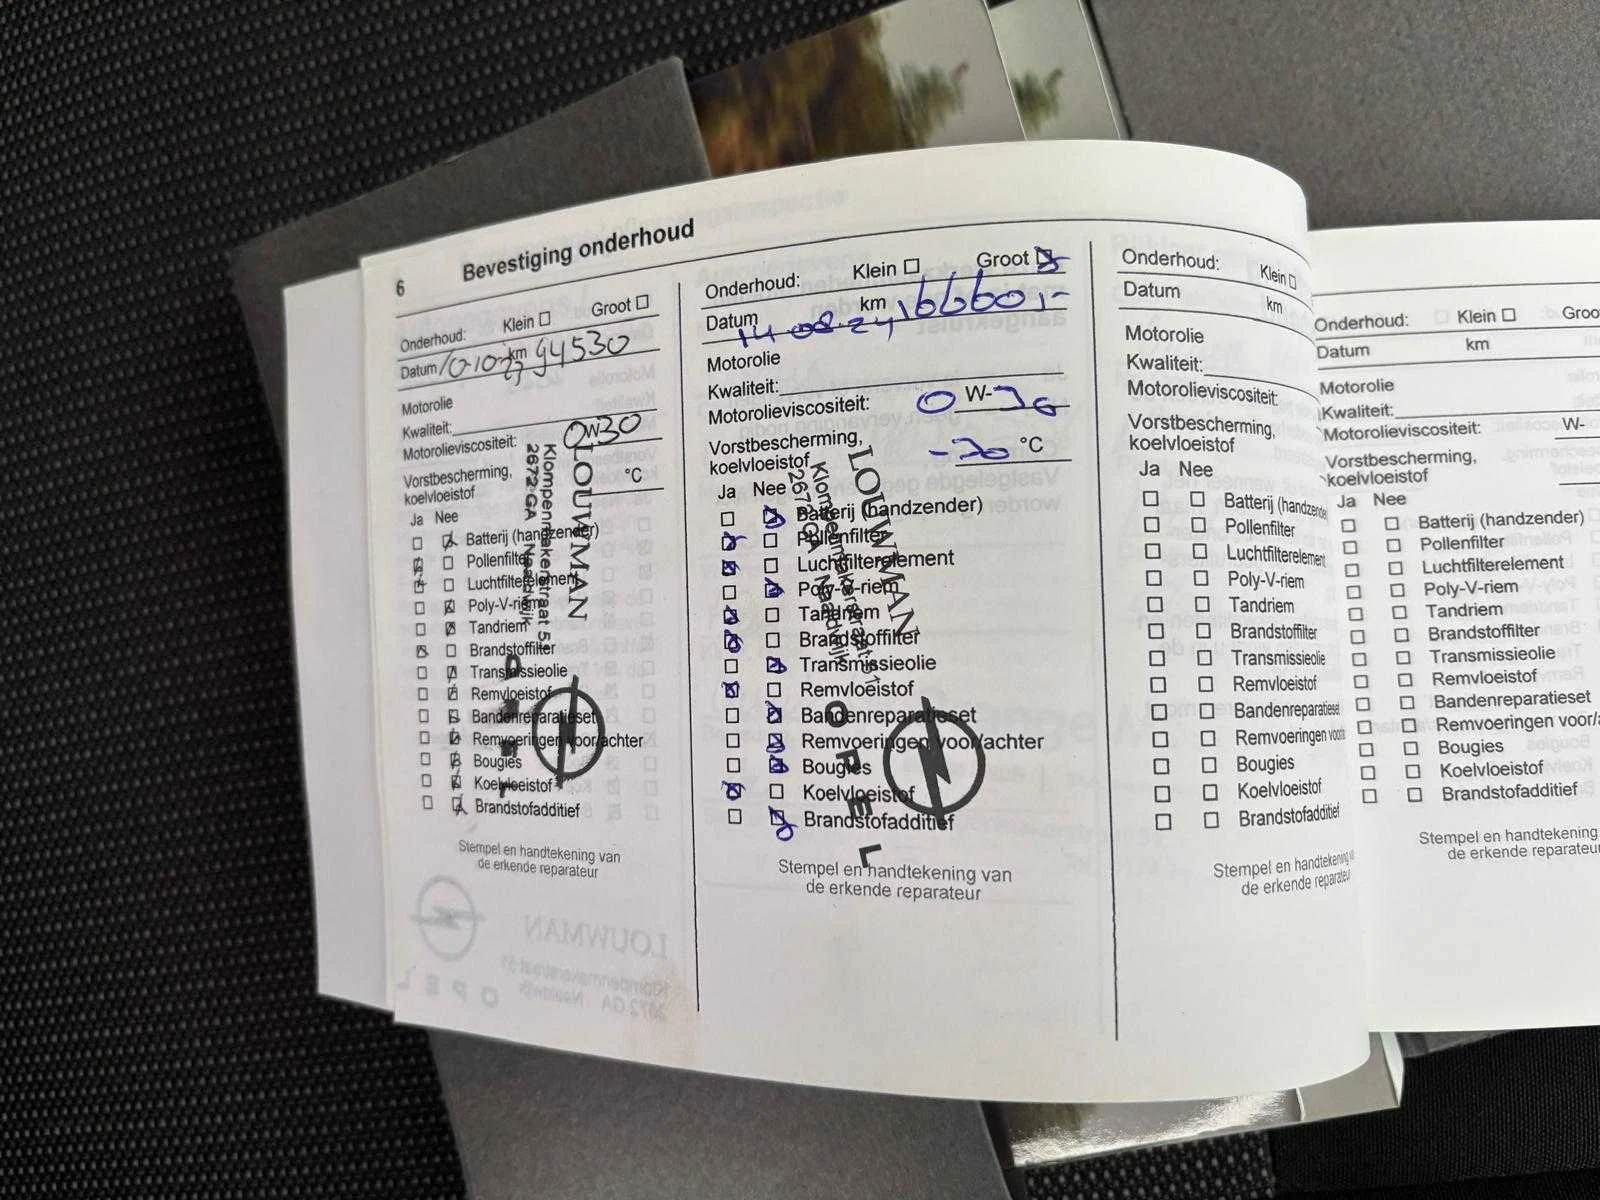 6
Bevestiging onderhoud
Onderhoud: Klein Groot
Datum 10-10-23 km 94530
Motorolie
Kwaliteit:
Motorolieviscositeit: 0W30
Vorstbescherming,
koelvloeistof °C
Ja Nee
Batterij (handzender)
Pollenfilter
Luchtfilterelement
Poly-V-riem
Tandriem
Brandstoffilter
Transmissieolie
Remvloeistof
Bandenreparatieset
Remvoeringen voor/achter
Bougies
Koelvloeistof
Brandstofadditief
LOUWMAN
Klompenmakerstraat 51
2672 GA Naaldwijk
OPEL
Stempel en handtekening van
de erkende reparateur
Onderhoud: Klein Groot
Datum 14-08-24 km
Motorolie
Kwaliteit:
Motorolieviscositeit: 0 W-
Vorstbescherming,
koelvloeistof °C
Ja Nee
Batterij (handzender)
Pollenfilter
Luchtfilterelement
Poly-V-riem
Tandriem
Brandstoffilter
Transmissieolie
Remvloeistof
Bandenreparatieset
Remvoeringen voor/achter
Bougies
Koelvloeistof
Brandstofadditief
LOUWMAN
Klompenmakerstraat 51
2672 GA Naaldwijk
OPEL
Stempel en handtekening van
de erkende reparateur
Onderhoud: Klein
Datum km
Motorolie
Kwaliteit:
Motorolieviscositeit:
Vorstbescherming,
koelvloeistof
Ja Nee
Batterij (handzende
Pollenfilter
Luchtfilterelement
Poly-V-riem
Tandriem
Brandstoffilter
Transmissieolie
Remvloeistof
Bandenreparatieset
Remvoeringen voor/a
Bougies
Koelvloeistof
Brandstofadditief
Stempel en handtekening v
de erkende reparateu
Onderhoud: Klein Groo
Datum km
Motorolie
Kwaliteit:
Motorolieviscositeit: W-
Vorstbescherming,
koelvloeistof
Ja Nee
Batterij (handzender)
Pollenfilter
Luchtfilterelement
Poly-V-riem
Tandriem
Brandstoffilter
Transmissieolie
Remvloeistof
Bandenreparatieset
Remvoeringen voor/a
Bougies
Koelvloeistof
Brandstofadditief
Stempel en handtekening
de erkende reparateu